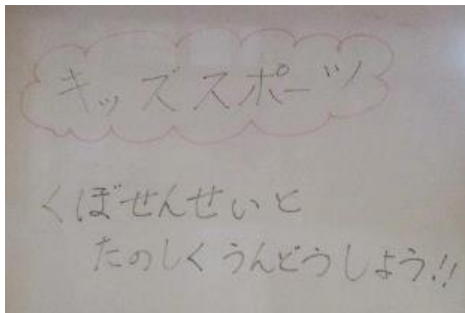 キッズスポーツ
くぼせんせいと
たのしくうんどうしよう!!